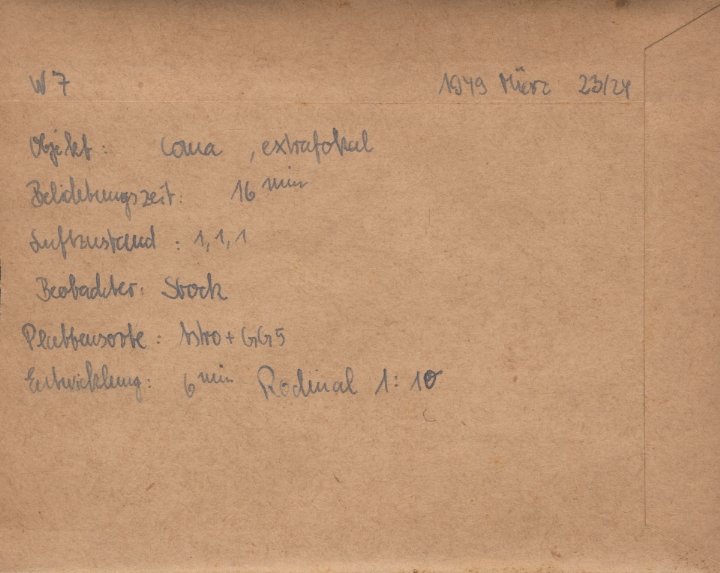 W 7 1949 März 23/24
Objekt: Coma, extrafokal
Belichtungszeit: 16 min
Luftzustand: 1, 1, 1
Beobachter: Stock
Plattensorte: Astro + GG5
Entwicklung: 6 min Rodinal 1:10